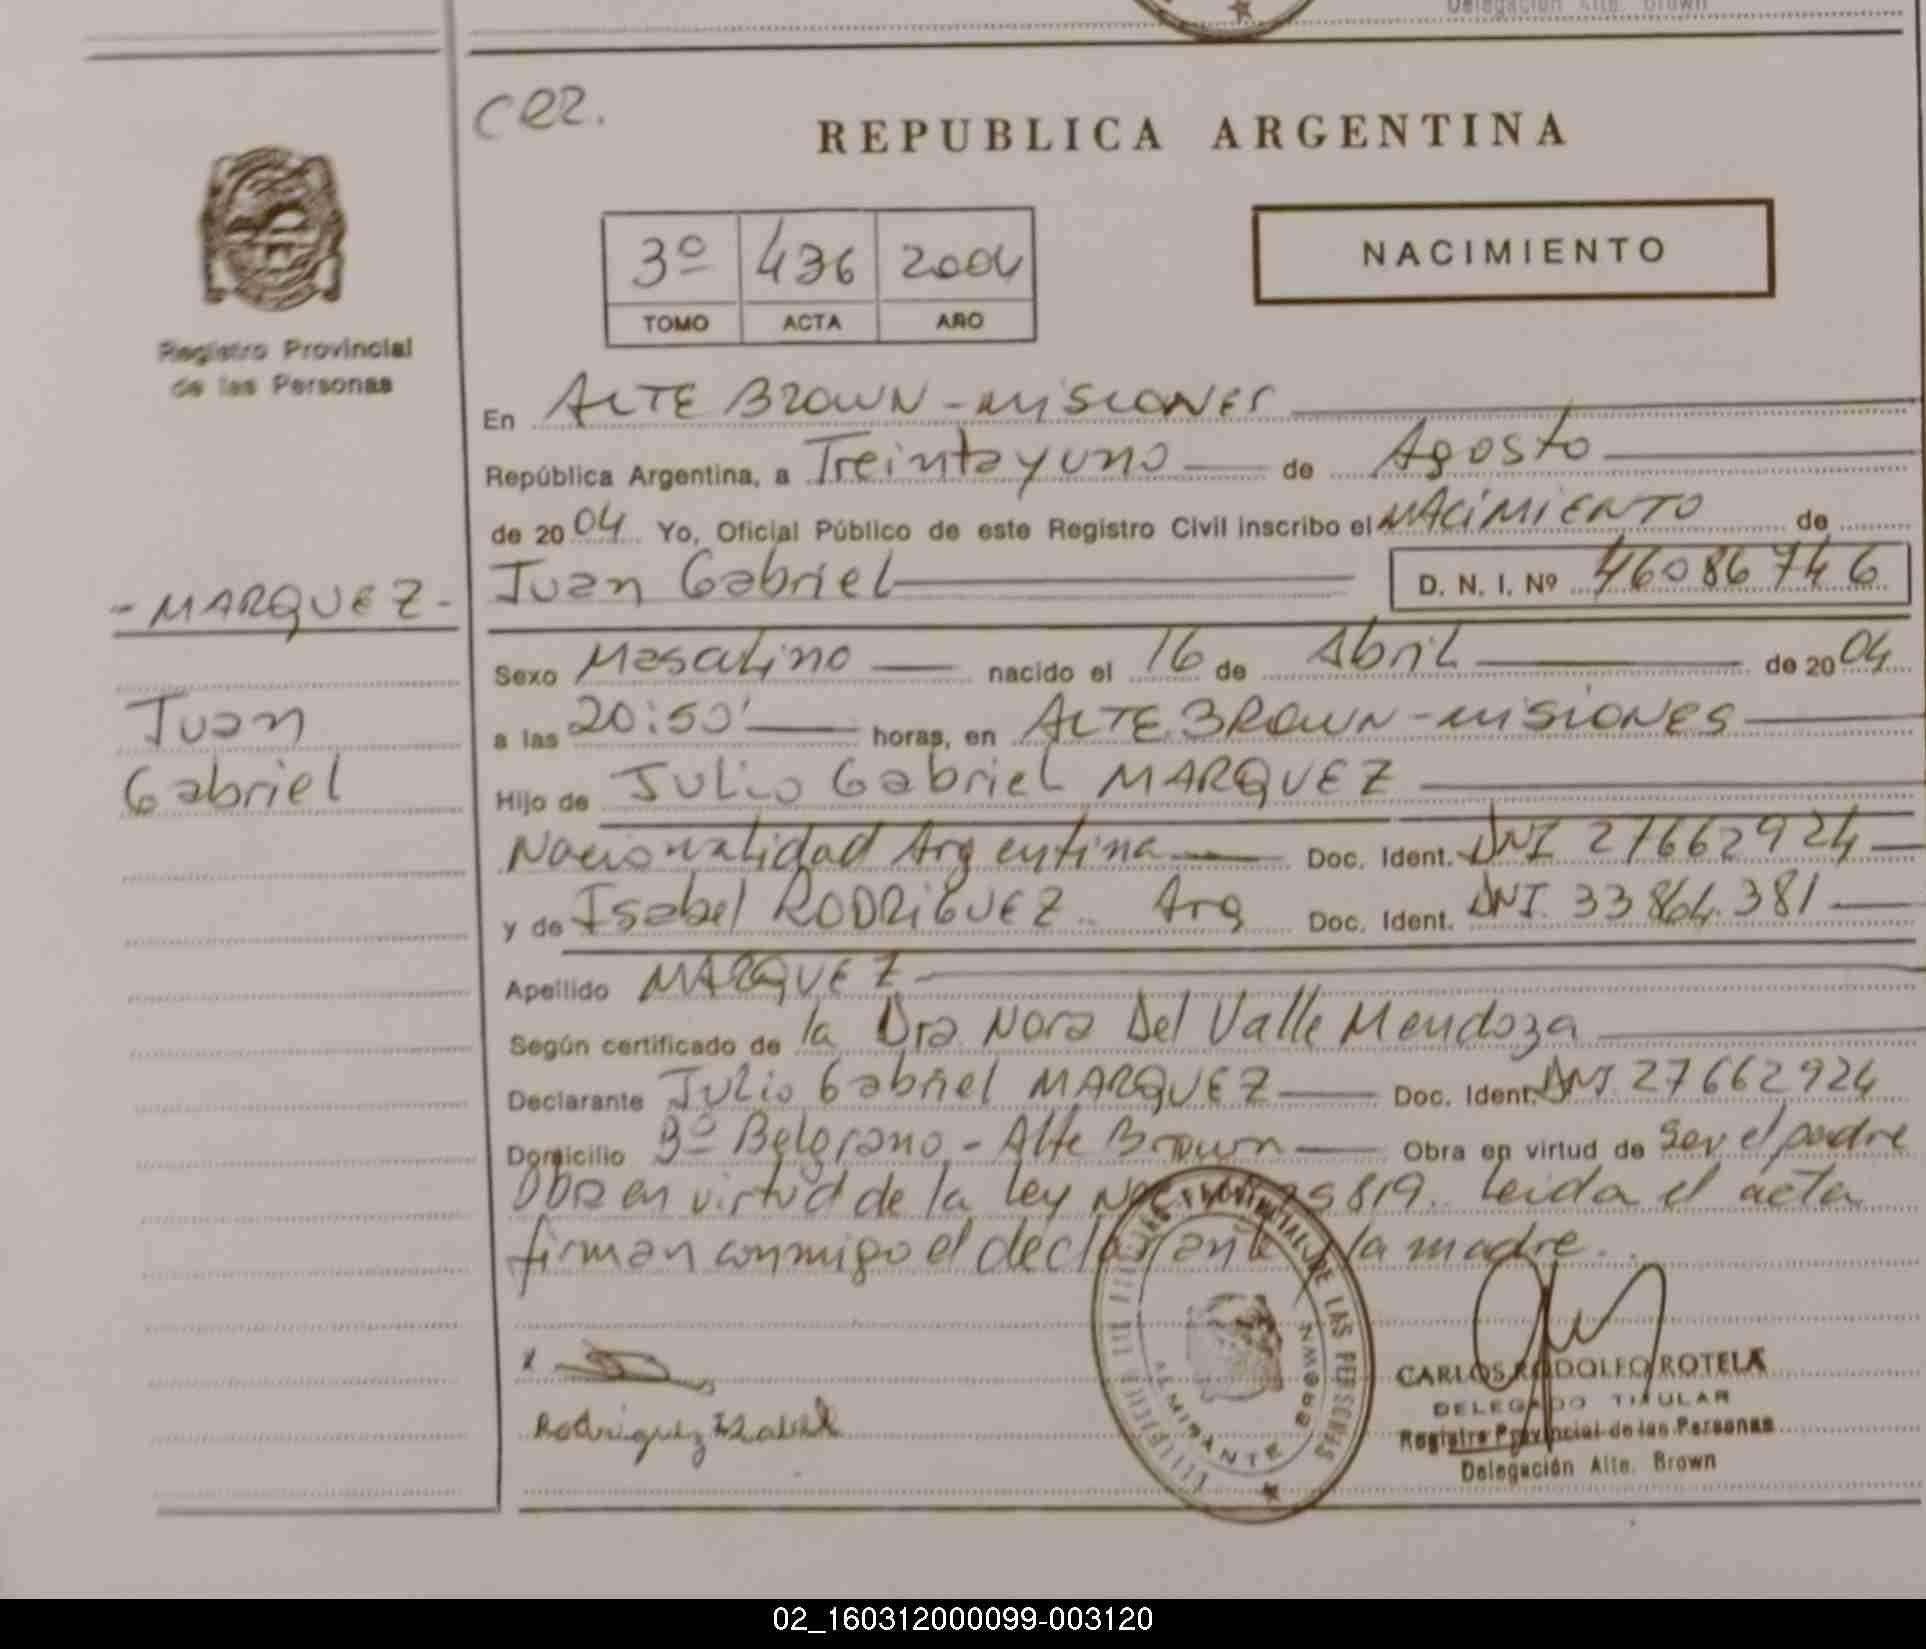 Delegación Alte. Brown
cez.
REPUBLICA ARGENTINA
3º 436 2004
TOMO ACTA AÑO
NACIMIENTO
Registro Provincial
de las Personas
En ALTE BROWN - MISIONES
República Argentina, a Treinta y uno de Agosto
de 2004 Yo, Oficial Público de este Registro Civil inscribo el NACIMIENTO de
Juan Gabriel D. N. I. Nº 46086746
- MARQUEZ -
Juan
Gabriel
Sexo Masculino nacido el 16 de Abril de 2004
a las 20:50' horas, en ALTE. BROWN - MISIONES
Hijo de Julio Gabriel MARQUEZ
Nacionalidad Argentina Doc. Ident. DNI 27662924
y de Isabel RODRIGUEZ. Arg Doc. Ident. DNI. 33864.381
Apellido MARQUEZ
Según certificado de la Dra Nora Del Valle Mendoza
Declarante Julio Gabriel MARQUEZ Doc. Ident. DNI. 27662924
Domicilio Bº Belgrano - Alte Brown Obra en virtud de ser el padre
Obra en virtud de la ley 819. Leida el acta
firman conmigo el declarante la madre.
x
Rodriguez Isabel
PROVINCIAL DE LAS PERSONAS
ALMIRANTE BROWN
CARLOS RODOLFO ROTELA
DELEGADO TITULAR
Registro Provincial de las Personas
Delegación Alte. Brown
02_160312000099-003120